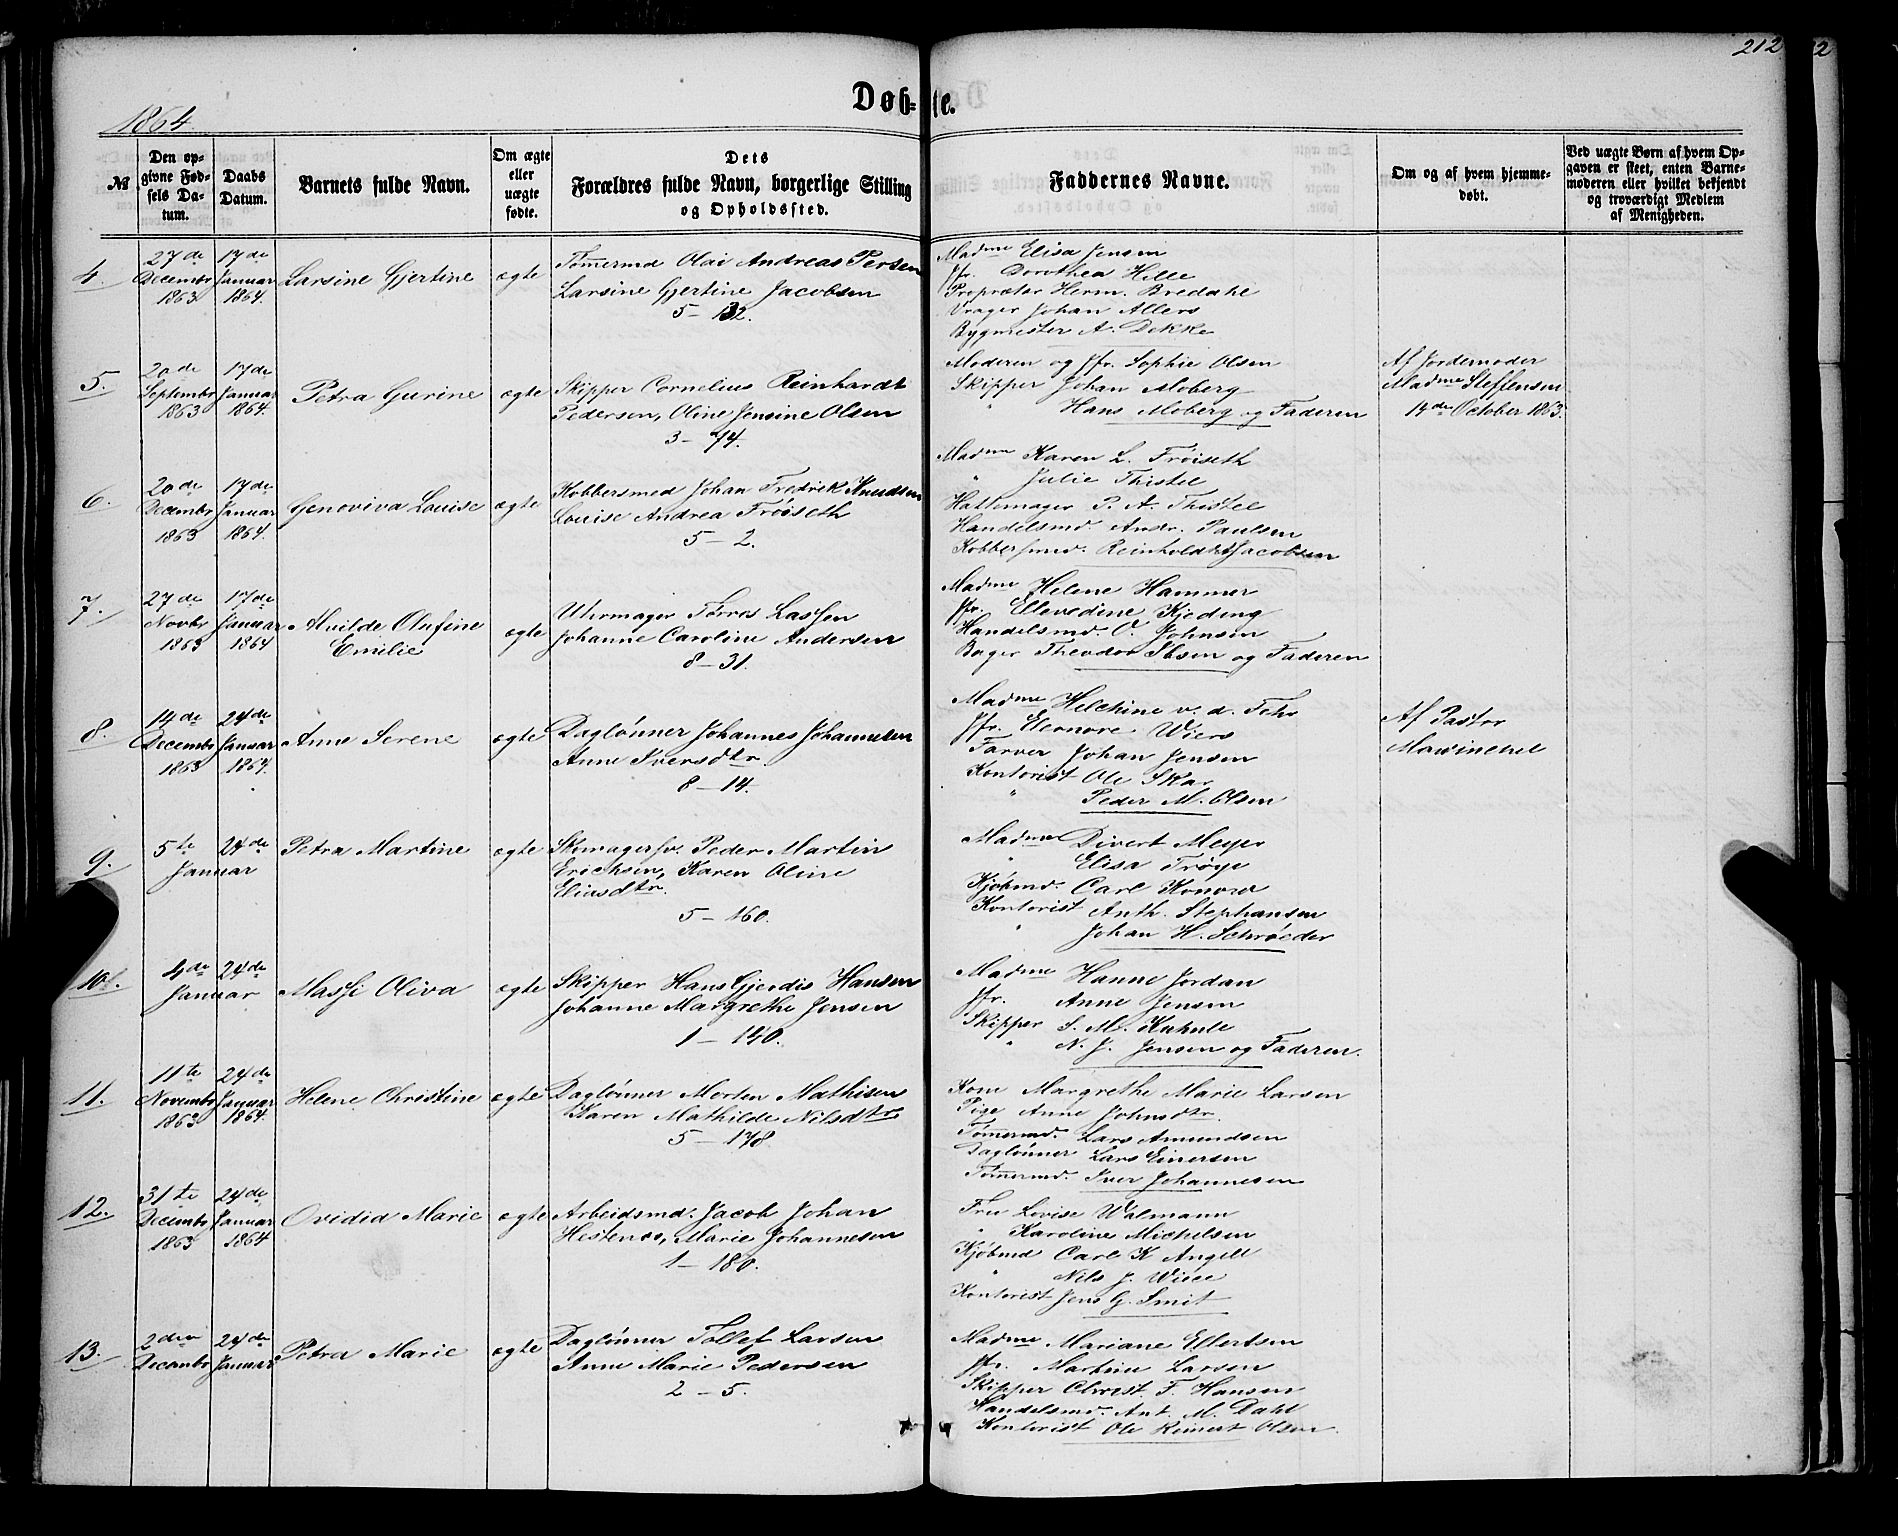 212
2
1864
Døb-te.
№
Den op-
givne Fød-
sels Da-
tum.
Daabs
Datum.
Barnets fulde Navn.
Om ægte
eller
uægte
fødte.
Dets
Forældres fulde Navn, borgerlige Stilling
og Opholdssted.
Faddernes Navne.
Om og af hvem hjemme-
døbt.
Ved uægte Børn af hvem Op-
gaven er skeet, enten Barne-
moderen eller hvilket bekjendt
og troværdigt Medlem
af Menigheden.
4.
27de
Decembr
1863
17de
Januar
1864.
Larsine Gjertine
ægte
Tømermd Olai Andreas Persen
Larsine Gjertine Jacobsen
5 - 132.
Madme Elisa Jensen
Jfr. Dorothea Hille
Proprætor Herm. Bredahl
Vrager Johan Allers
Bygmester A. Dekke
5.
20de
Septembr
1863
17de
Januar
1864.
Petra Gurine
ægte
Skipper Cornelius Reinhardt
Pedersen, Oline Jensine Olsen
3 - 74.
Moderen og Jfr. Sophie Olsen
Skipper Johan Moberg
" Hans Moberg og Faderen
Af Jordemoder
Madme Steffensen
14de October 1863.
6.
20de
Decembr
1863
17de
Januar
1864.
Genoviva Louise
ægte
Kobbersmed Johan Fredrik Knudsen
Louise Andrea Frøiseth
5 - 2.
Madme Karen L. Frøiseth
" Julie Thistel
Hattemager P. A. Thistel
Handelsmd. Andr. Paulsen
Kobbersmd. Reinholdt Jacobsen
7.
27de
Novbr
1863
17de
Januar
1864
Alvilde Olufine
Emilie
ægte
Uhrmager Tørres Lassen
Johanne Caroline Andersen
8 - 31.
Madme Helene Hammer
Jfr. Ellevedine Kjeding
Handelsmd. O. Johnsen
Bager Theodor Ibsen og Faderen
8.
14de
Decembr
1863
24de
Januar
1864.
Anne Serene
ægte
Daglønner Johannes Johannesen
Anne Iversdtr.
8 - 14.
Madme Helchine v. d. Fehr
Jfr. Elenore Wiers
Farver Johan Jensen
Kontorist Ole Skar
" Peder M. Olsen
Af Pastor
9.
5te
Januar
24de
Petra Martine
ægte
Skomagersv. Peder Martin
Erichsen, Karen Oline
Eliasdtr.
5 - 160.
Madme Divert Meyer
" Elisa Trøye
Kjøbmd. Carl Konow
Kontorist Anth. Stephansen
" Johan H. Schrøeder
10.
4de
Januar
24de
Massi Oliva
ægte
Skipper Hans Gjerdis Hansen
Johanne Margrethe Jensen
1 - 140.
Madme Hanne Jordan
Jfr. Anne Jensen
Skipper S. M. Kuhnle
" N. J. Jensen og Faderen.
11.
11te
Novembr
1863
24de
Januar
1864.
Helene Christine
ægte
Daglønner Morten Mathisen
Karen Mathilde Nilsdtr
5 - 178.
Kone Margrethe Marie Larsen
Pige Anne Johnsdtr.
Tømermd. Lars Amundsen
Daglønner Lars Einersen
Tømermd. Iver Johannesen
12.
31te
Decembr
1863
24de
Januar
1864
Ovidia Marie
ægte
Arbeidsmd. Jacob Johan
Hestenes, Marie Johannesen
1 - 180.
Fru Lovise Walmann
" Karoline Michelsen
Kjøbmd Carl K Angell
" Nils J. Wiese
Kontorist Jens G. Smit
13.
2den
Decembr
24de
Januar
Petra Marie
ægte
Daglønner Tollef Larsen
Anne Marie Pedersen
2 - 5.
Madme Mariane Ellertsen
Jfr. Martine Larsen
Skipper Christ. F. Hansen
Handelsmd. Ant. M. Dahl
Kontorist Ole Rimert Olsen.